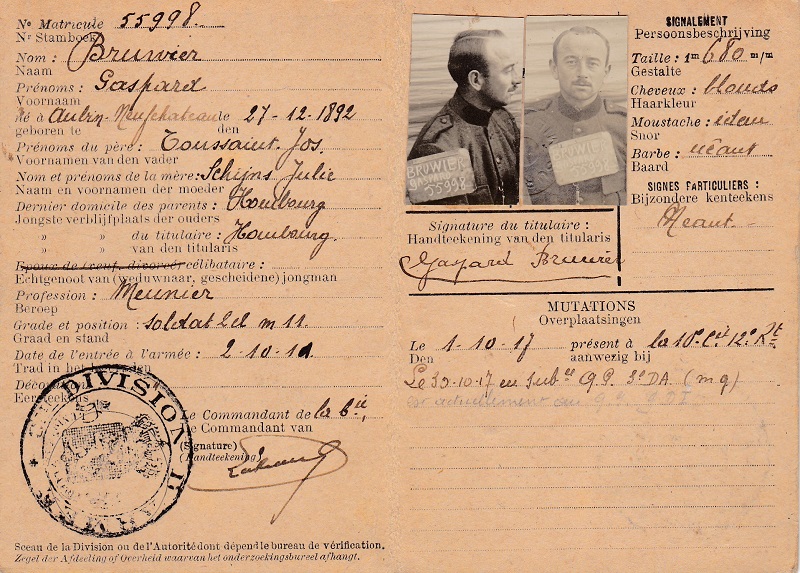 No Matricule 55998
Nr Stamboek
Nom : Bruwier
Naam
Prénoms : Gaspard
Voornaam
Né à Aubin-Neufchateau le 27-12-1892
geboren te den
Prénoms du père : Toussaint Jos.
Voornamen van den vader
Nom et prénoms de la mère : Schijns Julie
Naam en voornamen der moeder
Dernier domicile des parents : Hombourg
Jongste verblijfplaats der ouders
» » du titulaire : Hombourg.
» » van den titularis
Epoux de (veuf, divorcé) célibataire :
Echtgenoot van (weduwnaar, gescheidene) jongman
Profession : Meunier
Beroep
Grade et position : soldat 2d m 11.
Graad en stand
Date de l'entrée à l'armée : 2-10-11
Trad in het
Eereteekens
Le Commandant de la Cie
De Commandant van
(Signature)
(Handteekening)
DIVISION D'ARMÉE
Sceau de la Division ou de l'Autorité dont dépend le bureau de vérification.
Zegel der Afdeeling of Overheid waarvan het onderzoekingsbureel afhangt.
BRUWIER
55998
BRUWIER
55998
Signature du titulaire :
Handteekening van den titularis
Gaspard Bruwier
SIGNALEMENT
Persoonsbeschrijving
Taille : 1m 680 m/m
Gestalte
Cheveux : blonds
Haarkleur
Moustache : idem
Snor
Barbe : néant
Baard
SIGNES PARTICULIERS :
Bijzondere kenteekens
Néant.
MUTATIONS
Overplaatsingen
Le 1-10-17 présent à la 10e Cie 12e Rt
Den aanwezig bij
Le 30-10-17 en sub.ce Q.G. 3e DA. (mq)
est actuellement au